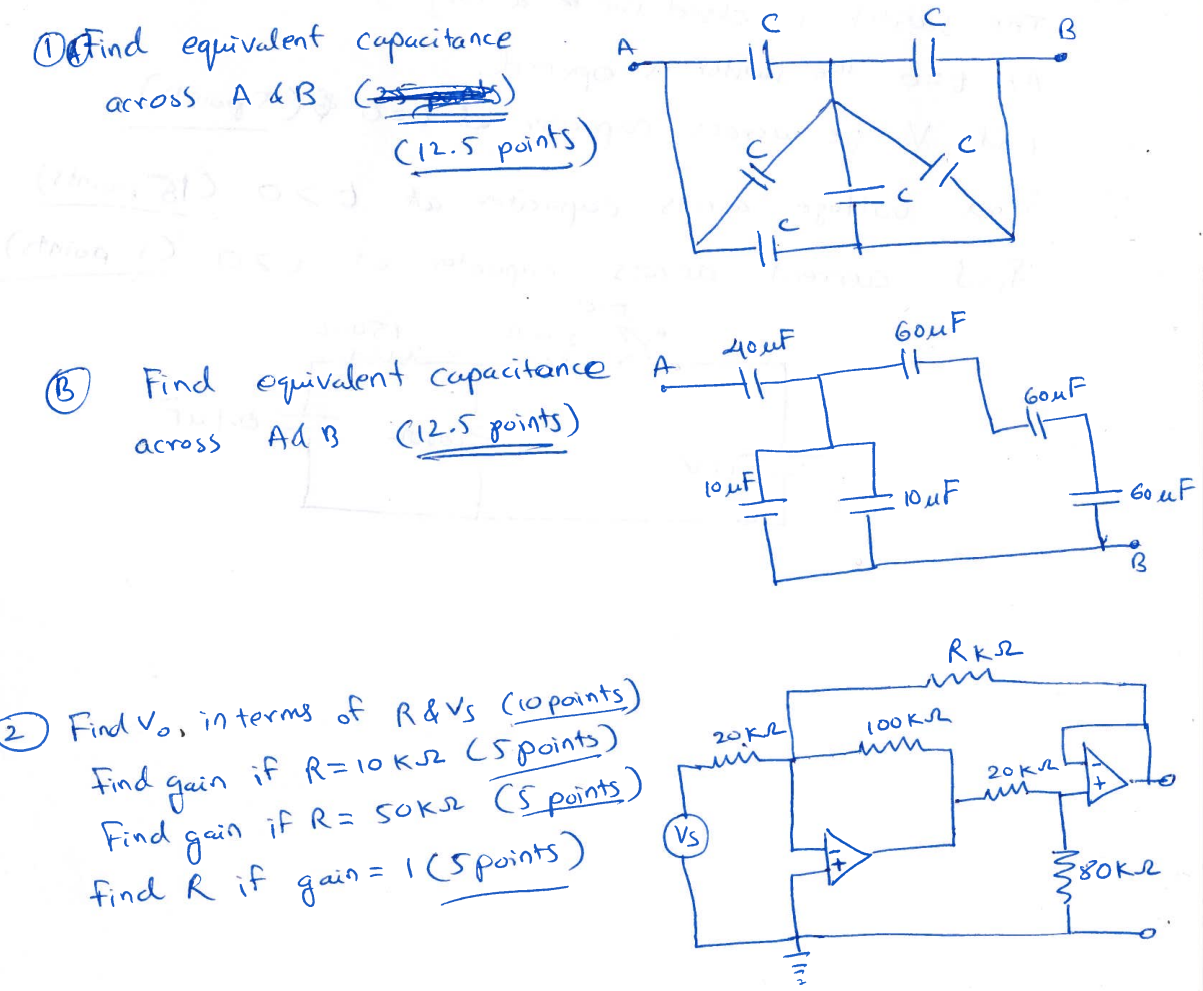 ① A Find equivalent capacitance
across A & B
(12.5 points)
A
C
C
B
C
C
C
C
Ⓑ Find equivalent capacitance
across A & B (12.5 points)
A
40 μF
60 μF
60 μF
10 μF
10 μF
60 μF
B
② Find Vo, in terms of R & Vs (10 points)
find gain if R = 10 KΩ (5 points)
Find gain if R = 50KΩ (5 points)
find R if gain = 1 (5 points)
RKΩ
20KΩ
100KΩ
20KΩ
-
+
Vs
-
+
80KΩ